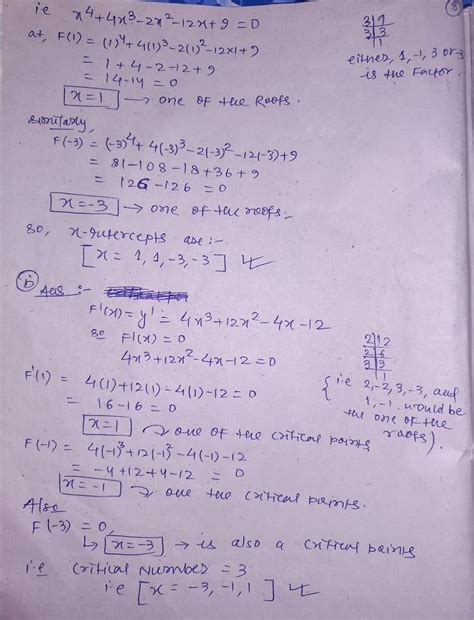 i.e x⁴+4x³-2x²-12x+9 = 0
at, F(1) = (1)⁴+4(1)³-2(1)²-12×1+9
= 1+4-2-12+9
= 14-14 = 0
x=1 → one of the Roots.
8
3|9
3|3
1
either, 1, -1, 3 or -3
is the Factor.
Similarly,
F(-3) = (-3)⁴+4(-3)³-2(-3)²-12(-3)+9
= 81-108-18+36+9
= 126-126 = 0
x=-3 → one of the roots:-
so, x-intercepts are:-
[x = 1, 1, -3, -3]
b Ans :-
F'(x) = y' = 4x³+12x²-4x-12
so F'(x) = 0
4x³+12x²-4x-12 = 0
2|12
2|6
3|3
1
{i.e 2, -2, 3, -3, and
1, -1 would be
the one of the
roots).
F'(1) = 4(1)+12(1)-4(1)-12 = 0
= 16-16 = 0
x=1 → one of the critical points
F(-1) = 4(-1)³+12(-1)²-4(-1)-12
= -4+12+4-12 = 0
x=-1 → one the critical points.
Also
F(-3) = 0,
↳ x=-3 → is also a critical points
i.e critical Number = 3
i.e [x = -3, -1, 1]